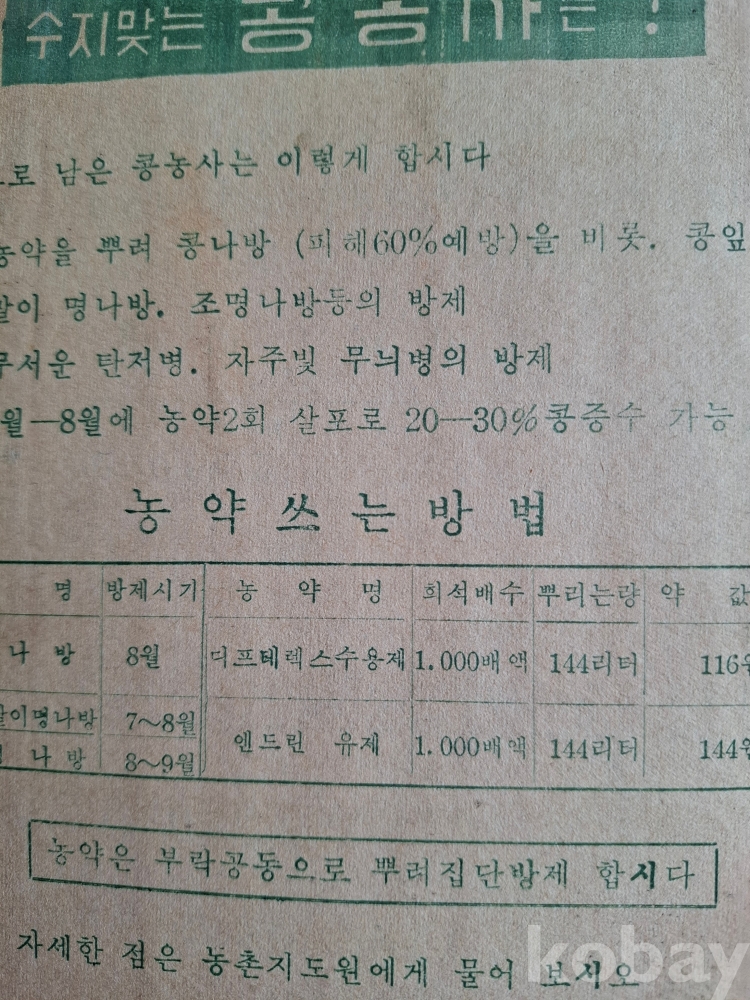 수지맞는 콩농사는!
로 남은 콩농사는 이렇게 합시다
농약을 뿌려 콩나방 (피해60%예방)을 비롯. 콩잎
말이 명나방. 조명나방등의 방제
무서운 탄저병. 자주빛 무늬병의 방제
월—8월에 농약2회 살포로 20—30%콩증수 가능
농약쓰는방법
명 방제시기 농약명 희석배수 뿌리는량 약값
나방 8월 디프테렉스수용제 1.000배액 144리터 116원
말이명나방 7~8월 엔드린 유제 1.000배액 144리터 144원
명나방 8~9월
농약은 부락공동으로 뿌려집단방제 합시다
자세한 점은 농촌지도원에게 물어 보시오
kobay